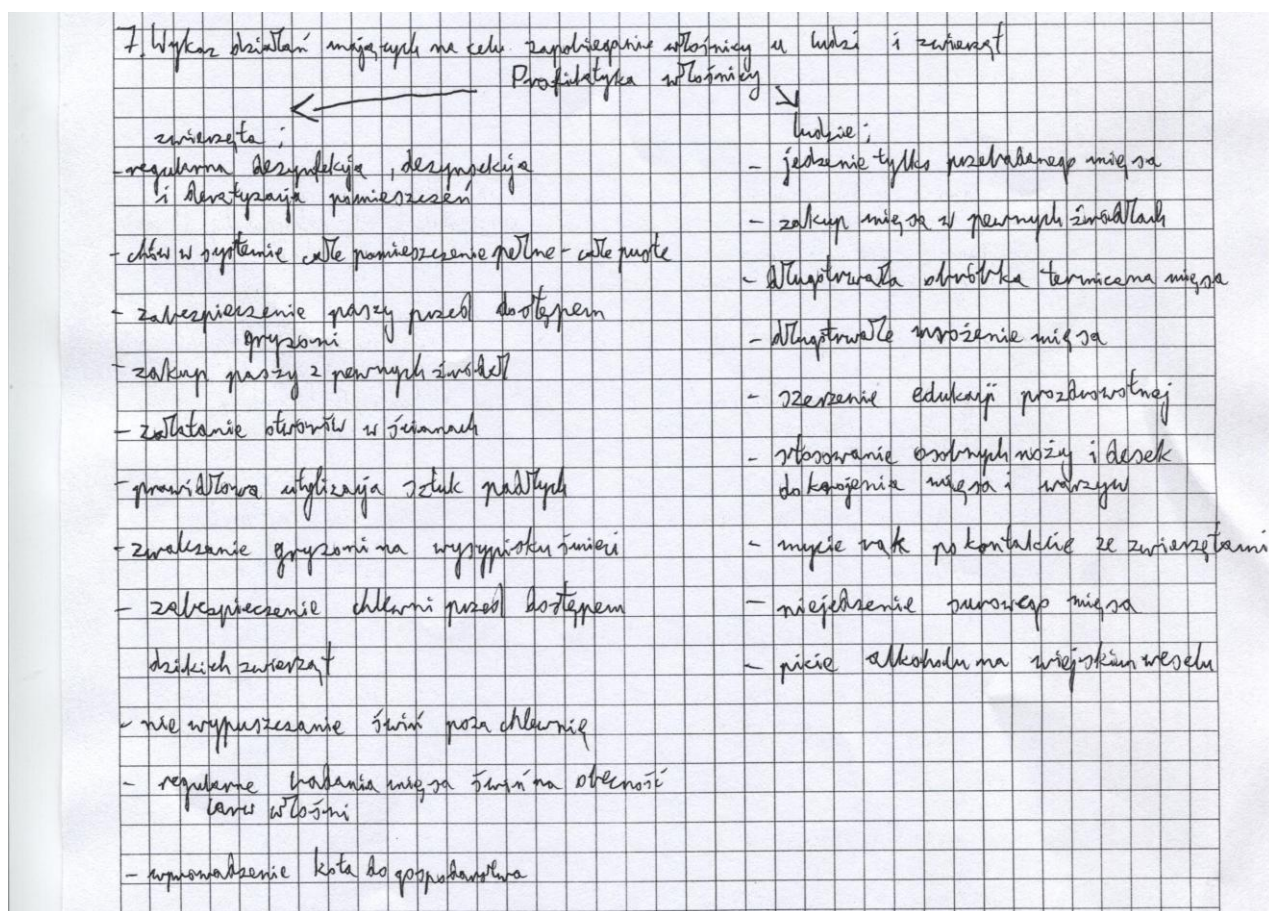 7. Wykaz działań mających na celu zapobieganie włośnicy u ludzi i zwierząt
Profilaktyka włośnicy
zwierzęta;
- regularna dezynfekcja, dezynsekcja
i deratyzacja pomieszczeń
- chów w systemie całe pomieszczenie pełne - całe puste
- zabezpieczenie paszy przed dostępem
gryzoni
- zakup paszy z pewnych źródeł
- załatanie otworów w ścianach
- prawidłowa utylizacja sztuk padłych
- zwalczanie gryzoni na wysypisku śmieci
- zabezpieczenie chlewni przed dostępem
dzikich zwierząt
- nie wypuszczanie świń poza chlewnię
- regularne badania mięsa świń na obecność
larw włośni
- wprowadzenie kota do gospodarstwa
ludzie;
- jedzenie tylko przebadanego mięsa
- zakup mięsa z pewnych źródłach
- długotrwała obróbka termiczna mięsa
- długotrwałe mrożenie mięsa
- szerzenie edukacji prozdrowotnej
- stosowanie osobnych noży i desek
do krojenia mięsa i warzyw
- mycie rąk po kontakcie ze zwierzętami
- niejedzenie surowego mięsa
- picie alkoholu na wiejskim weselu